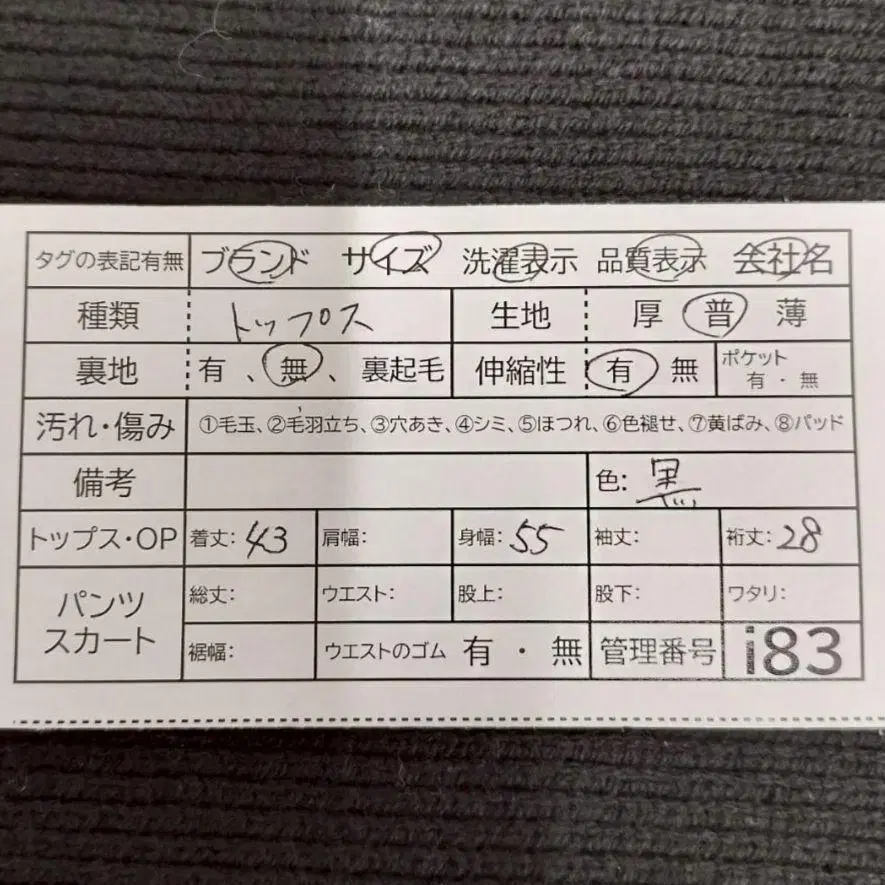 タグの表記有無 ブランド サイズ 洗濯表示 品質表示 会社名
種類 トップス 生地 厚 普 薄
裏地 有、無、裏起毛 伸縮性 有 無 ポケット 有・無
汚れ・傷み ①毛玉、②毛羽立ち、③穴あき、④シミ、⑤ほつれ、⑥色褪せ、⑦黄ばみ、⑧パッド
備考 色: 黒
トップス・OP 着丈: 43 肩幅: 身幅: 55 袖丈: 裄丈: 28
パンツ スカート 総丈: ウエスト: 股上: 股下: ワタリ:
裾幅: ウエストのゴム 有・無 管理番号 i83